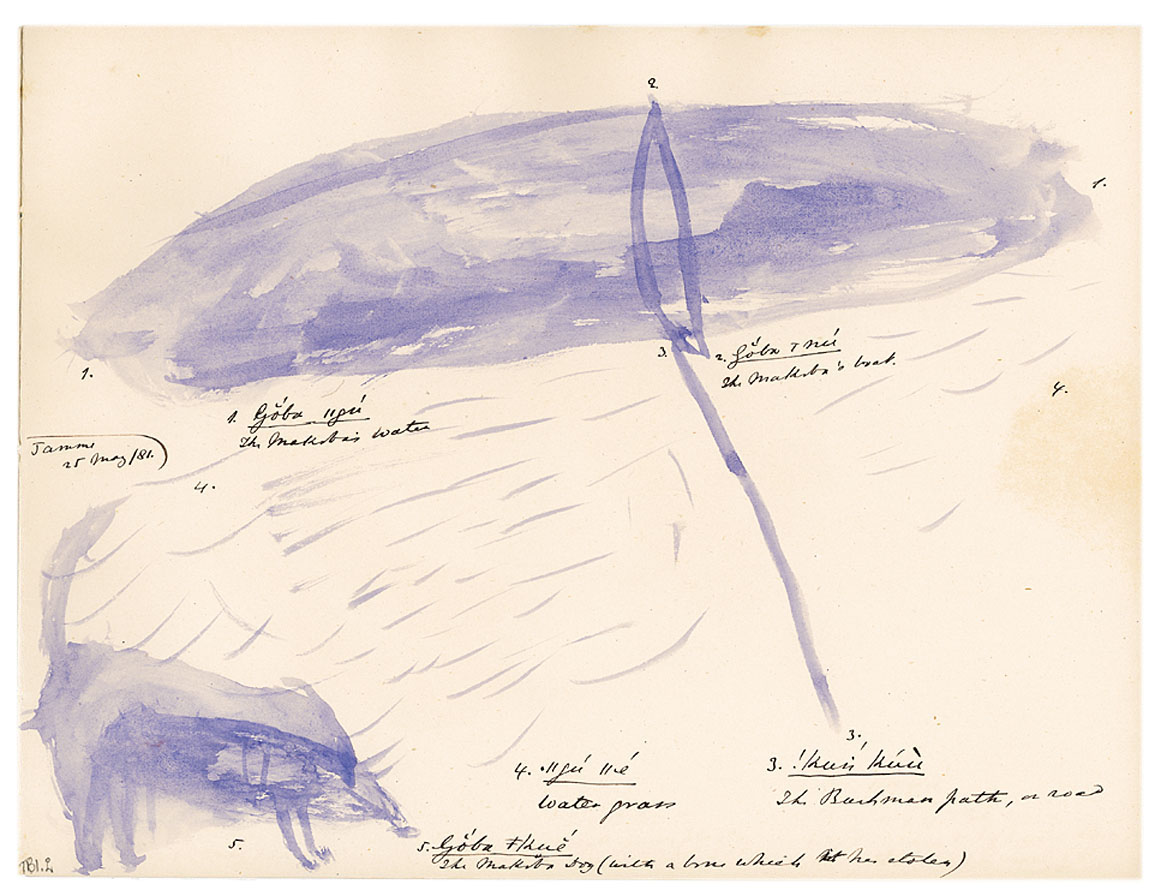 2.
1.
3.
2. Gŏba ǂnú
The Makoba's boat.
1.
4.
1. Gŏba ǁgú
The Makoba's water
Tamme
25 May/81.
4.
3.
4. ǁgú ǁé
Water grass
3. !kuń kúù
The Bushman path, or road
5.
5. Gŏba ǂkuĕ
The Makoba Dog (with a bone which it has stolen)
TB1.2